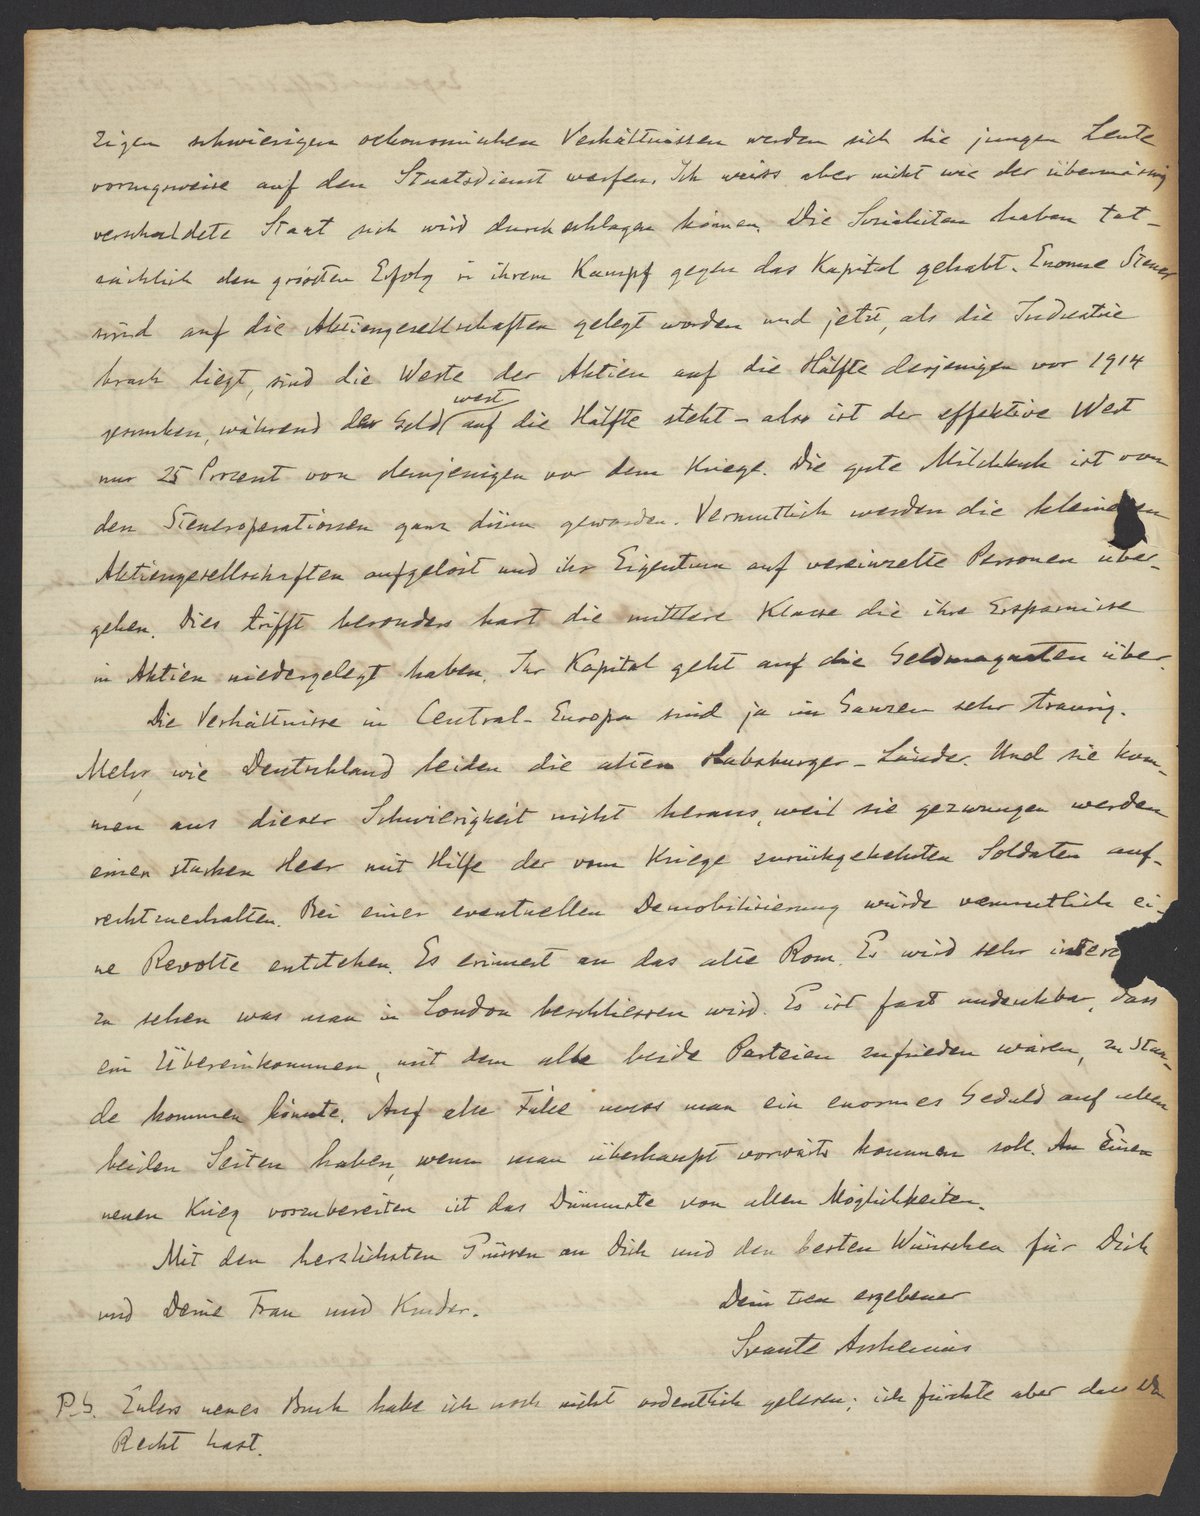 zigen schwierigen oekonomischen Verhältnissen werden sich die jungen Leute
vorzugsweise auf den Staatsdienst werfen. Ich weiss aber nicht wie der übermässig
verschuldete Staat sich wird durchschlagen können. Die Sozialisten haben tat-
sächlich den grössten Erfolg in ihrem Kampf gegen das Kapital gehabt. Enorme Steuer
sind auf die Aktiengesellschaften gelegt worden und jetzt, als die Industrie
brach liegt, sind die Werte der Aktien auf die Hälfte derjenigen vor 1914
gesunken, während der Geldwert auf die Hälfte steht - also ist der effektive Wert
nur 25 Prozent von demjenigen vor dem Kriege. Die gute Milchkuh ist von
den Steueroperationen ganz dünn geworden. Vermutlich werden die kleineren
Aktiengesellschaften aufgelöst und ihr Eigentum auf vereinzelte Personen über-
gehen. Dies trifft besonders hart die mittlere Klasse die ihre Ersparnisse
in Aktien niedergelegt haben. Ihr Kapital geht auf die Geldmagnaten über.
Die Verhältnisse in Central-Europa sind ja im Ganzen sehr traurig.
Mehr, wie Deutschland leiden die alten Habsburger-Länder. Und sie kom-
men aus dieser Schwierigkeit nicht heraus, weil sie gezwungen werden
einen starken Heer mit Hilfe der vom Kriege zurückgekehrten Soldaten auf-
rechtzuerhalten. Bei einer eventuellen Demobilisierung würde vermutlich ei-
ne Revolte entstehen. Es erinnert an das alte Rom. Es wird sehr intere
zu sehen was man in London beschliessen wird. Es ist fast undenkbar, dass
ein Übereinkommen, mit dem alle beide Parteien zufrieden wären, zu Stan-
de kommen könnte. Auf alle Fälle muss man ein enormes Geduld auf allen
beiden Seiten haben, wenn man überhaupt vorwärts kommen soll. Einen
neuen Krieg vorzubereiten ist das Dümmste von allen Möglichkeiten.
Mit den herzlichsten Grüssen an Dich und den besten Wünschen für Dich
und Deine Frau und Kinder.
Dein treu ergebener
Svante Arrhenius
P.S. Eulers neues Buch habe ich noch nicht ordentlich gelesen; ich fürchte aber dass Du
Recht hast.